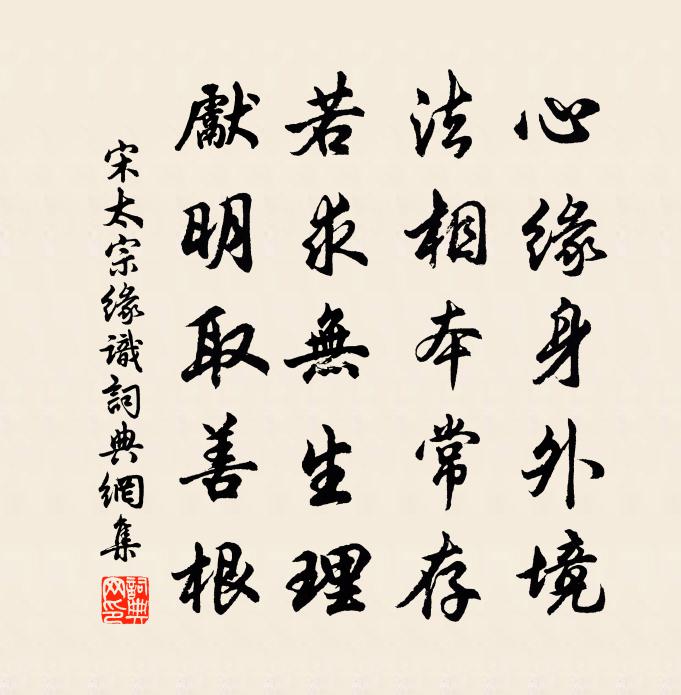 心緣身外境
法相本常存
若求無生理
獻明取善根
宋太宗緣識詞典網集
詞典網印